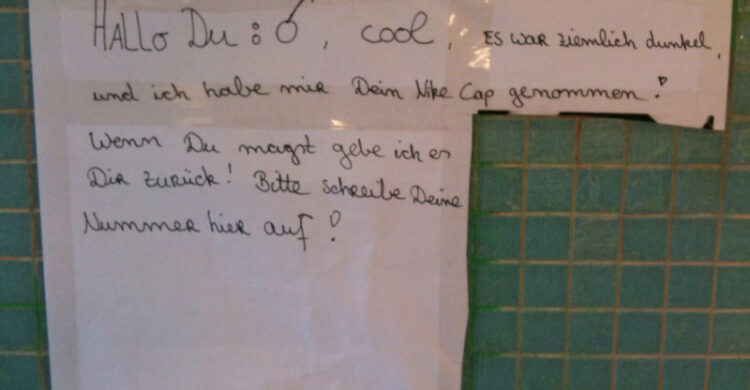 HALLO DU : ♂, cool, ES WAR ziemlich dunkel,
und ich habe mir Dein Nike Cap genommen!
Wenn Du magst gebe ich es
Dir zurück! Bitte schreibe Deine
Nummer hier auf!